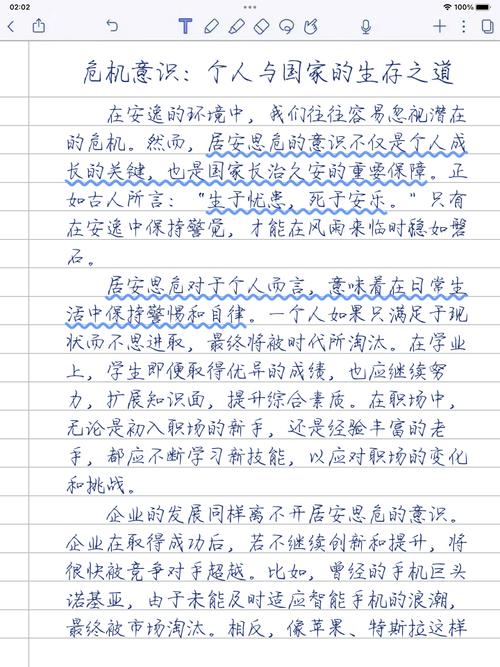 02:02
100%
危机意识：个人与国家的生存之道
在安逸的环境中，我们往往容易忽视潜在
的危机。然而，居安思危的意识不仅是个人成
长的关键，也是国家长治久安的重要保障。正
如古人所言：“生于忧患，死于安乐。”只有
在安逸中保持警觉，才能在风雨来临时稳如磐
石。
居安思危对于个人而言，意味着在日常生
活中保持警惕和自律。一个人如果只满足于现
状而不思进取，最终将被时代所淘汰。在学业
上，学生即便取得优异的成绩，也应继续努
力，扩展知识面，提升综合素质。在职场中，
无论是初入职场的新手，还是经验丰富的老
手，都应不断学习新技能，以应对职场的变化
和挑战。
企业的发展同样离不开居安思危的意识。
企业在取得成功后，若不继续创新和提升，将
很快被竞争对手超越。比如，曾经的手机巨头
诺基亚，由于未能及时适应智能手机的浪潮，
最终被市场淘汰。相反，像苹果、特斯拉这样